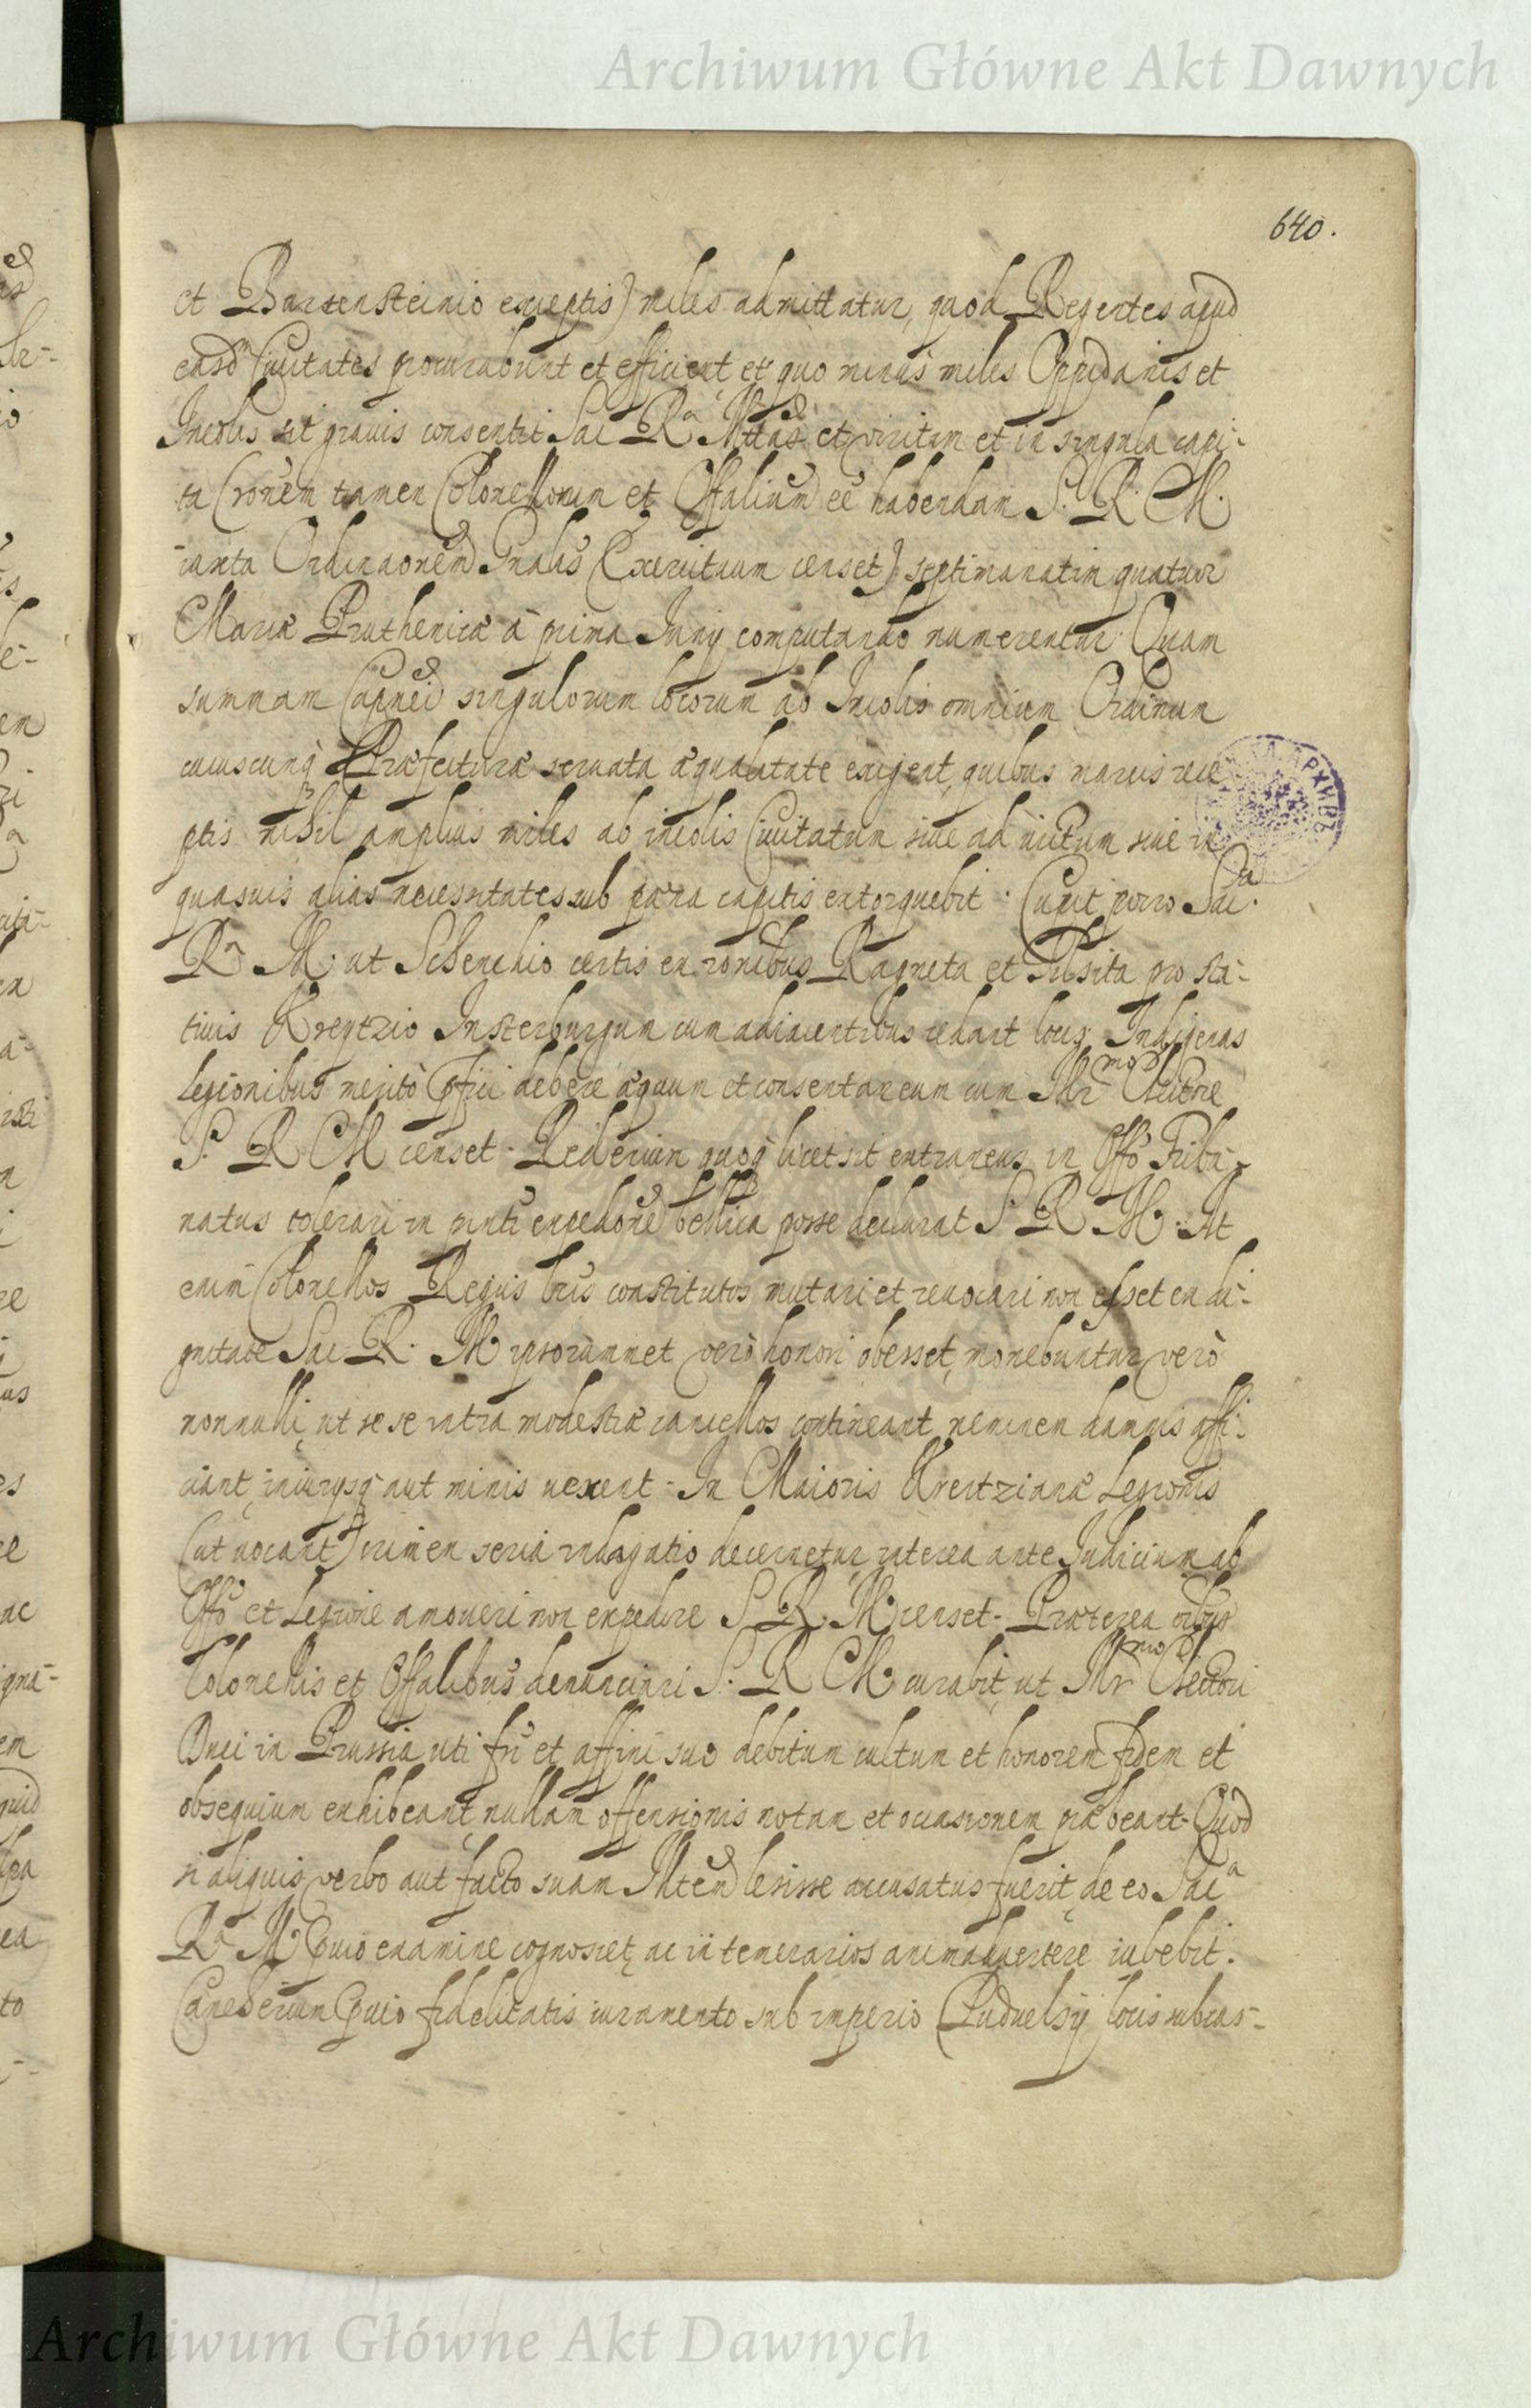 Archiwum Główne Akt Dawnych
640.
et Bartensteinio exceptis) miles admittatur, quod Regentes apud
easd Civitates procurabunt et efficient et quo minus miles Oppidanis et
Incolis sit gravis consentit Sac Rª Mttas et viritim et in singula capi-
ta (rõnem tamen Colonellorum et Offaliũ eẽ habendam S. R. M.
iuxta Ordinãonem Gnales Exercituum censet) septimanatim quatuor
Marcæ Pruthenicæ à prima Iunij computando numerentur. Quam
summam Capnei singulorum locorum ab Incolis omnium Ordinum
cuiuscunq̃ Præfecturæ servata æqualitate exigent, quibus marcis rece
ptis nihil amplius miles ab incolis Civitatum sive ad victum sive in
quasvis alias necessitates sub pæna capitis extorquebit. Cupit porro Sac.
Rª M. ut Schenchio certis ex rõnibus Ragneta et Tilsita pro sta-
tivis Kreytzio Insterburgum cum adiacentibus cedant locis. Indigenas
Legionibus meritò Pfici debere æquum et consentaneum cum Illr mo Elctore
S. R M censet. Rederium quoq̃ licet sit extraneus in Offo Tribu-
natus tolerari in pnti expedõne bellica posse declarat S. R M. At
enim Colonellos Regijs lris constitutos mutari et revocari non esset ex di-
gnitate Sac. R. M. ipsorummet verò honori obesset, monebuntur verò
nonnulli, ut se se intra modestiæ cancellos contineant neminem damnis affi-
ciant, iniurijsq̃ aut minis vexent. In Maioris Kreitzianæ Legionis
(ut vocant) crimen seria indagatio decernetur, interea ante Iudicium ab
Offo et Legione amoveri non expedire S. R. M. censet. Præterea oibus
Colonellis et Offalibus denunciari S. R M. curabit, ut Illr mo Electori
Duci in Prussia uti fri et affini suo debitum cultum et honorem fidem et
obsequium exhibeant nullam offensionis notam et occasionem præbeant. Quod
si aliquis verbo aut facto suam Mtem lesisse accusatus fuerit, de eo Sacª
Rª M. Pvio examine cognoscet, ac in temerarios animadvertere iubebit.
Canederium Pvio fidelitatis iuramento sub imperio Puduelsij locis subcas-
Archiwum Główne Akt Dawnych